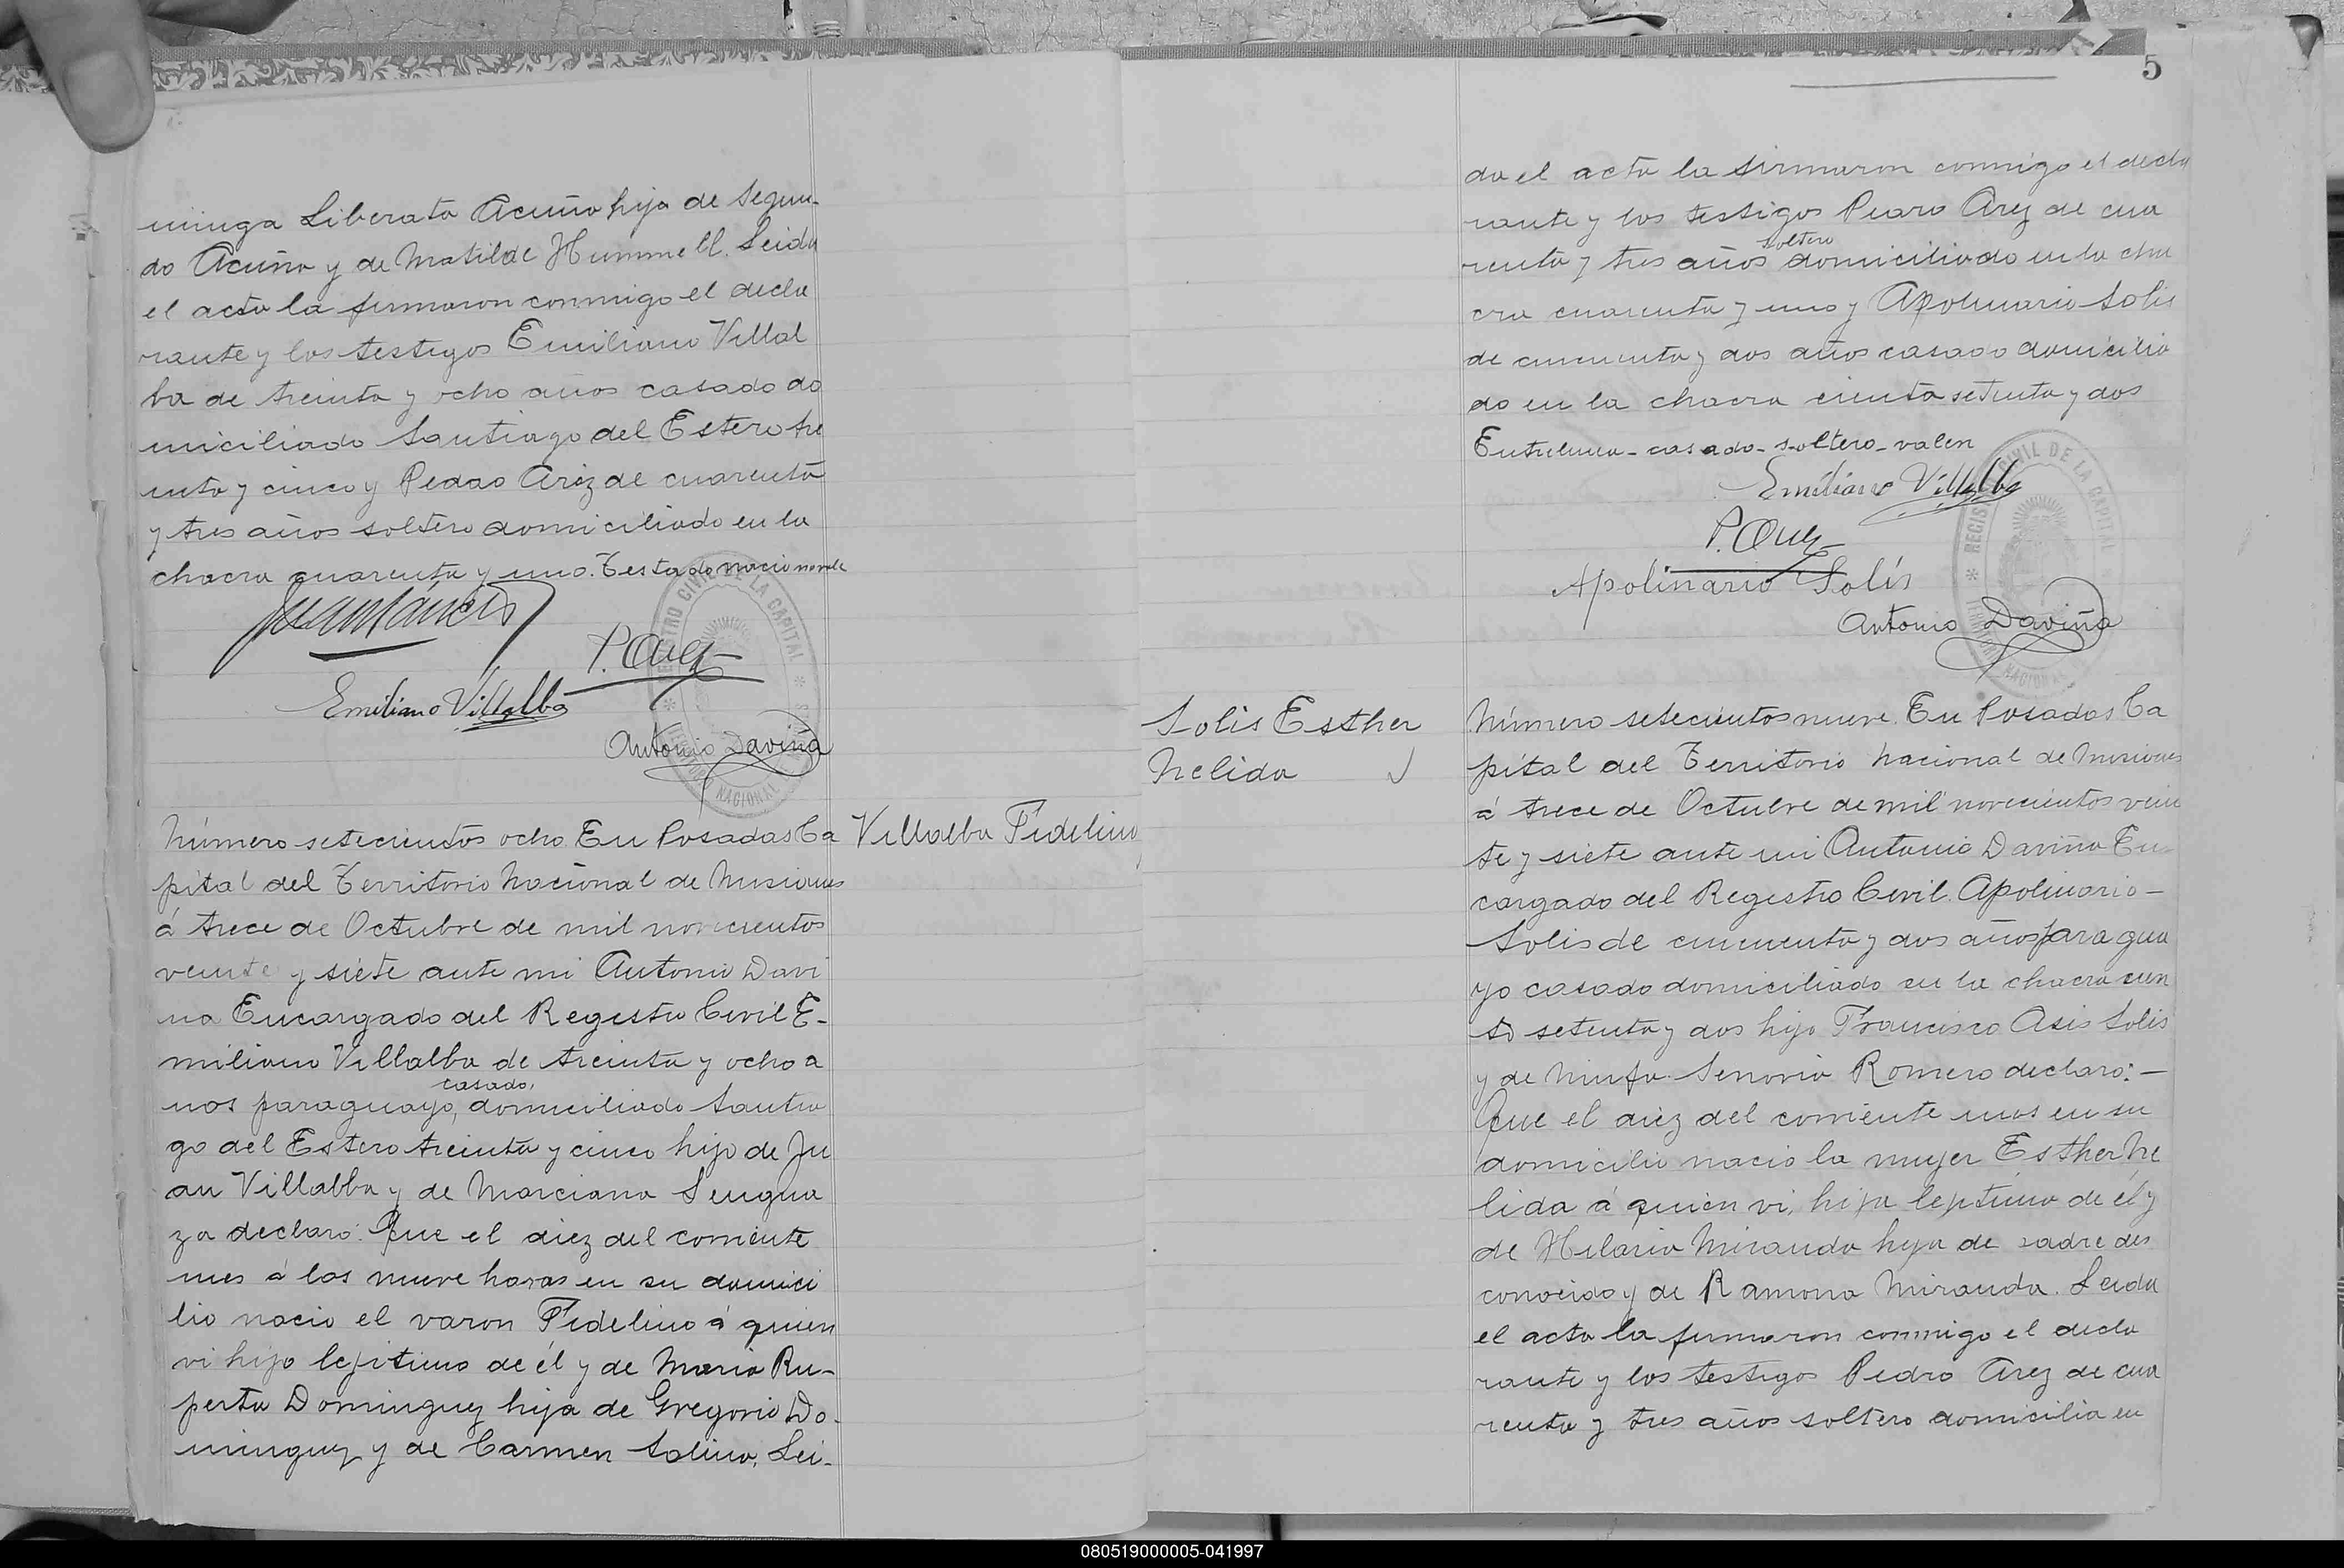 minga Liberata Acuña hija de Segun-
do Acuña y de Matilde Hummell. Leida
el acta la firmaron conmigo el decla
rante y los testigos Emiliano Villal
ba de treinta y ocho años casado do
miciliado Santiago del Estero tre
inta y cinco y Pedro Arez de cuarenta
y tres años soltero domiciliado en la
chacra cuarenta y uno. Testado
P. Arez
Emiliano Villalba
Antonio Daviña
REGISTRO CIVIL DE LA CAPITAL
TERRITORIO NACIONAL
Número setecientos ocho. En Posadas Ca
pital del Territorio Nacional de Misiones
á trece de Octubre de mil novecientos
veinte y siete ante mi Antonio Davi
na Encargado del Registro Civil E-
miliano Villalba de treinta y ocho a
casado,
nos paraguayo, domiciliado Santia
go del Estero treinta y cinco hijo de Ju
an Villalba y de Marciana
za declaró: Que el diez del corriente
mes á las nueve horas en su domici
lio nacio el varon Fidelino á quien
vi hijo lejitimo de él y de Maria Ru-
perta Dominguez hija de Gregorio Do-
minguez y de Carmen Lei-
Villalba Fidelino
5
da el acta la firmaron conmigo el decla
rante y los testigos Pedro Arez de cua
soltero
renta y tres años domiciliado en la cha
cra cuarenta y uno y Apolinario Solis
de cincuenta y dos años casado domicilia
do en la chacra ciento setenta y dos
Entrelinea - casado - soltero - valen
Emiliano Villalba
P. Arez
Apolinario Solís
Antonio Daviña
REGISTRO CIVIL DE LA CAPITAL
TERRITORIO NACIONAL
Solis Esther
Nelida
Número setecientos nueve. En Posadas Ca
pital del Territorio Nacional de Misiones
á trece de Octubre de mil novecientos vein
te y siete ante mi Antonio Daviña En-
cargado del Registro Civil. Apolinario -
Solis de cincuenta y dos años paragua
yo casado domiciliado en la chacra cien
to setenta y dos hijo Francisco Asis Solis
y de Ninfa Romero declaro: -
Que el diez del corriente mes en su
domicilio nacio la mujer Esther Ne
lida á quien vi, hija lejitima de él y
de Hilaria Miranda hija de padre des
conocido y de Ramona Miranda. Leida
el acta la firmaron conmigo el decla
rante y los testigos Pedro Arez de cua
renta y tres años soltero domicilia en
080519000005-041997